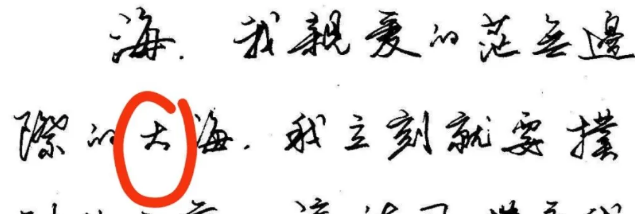 海。我親愛的茫無邊
際的大海。我立刻就要撲